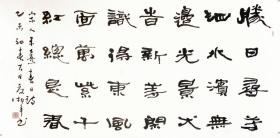 勝日尋芳
泗水濱無
邊光景一
時新等閑
識得東風
面萬紫千
紅總是春
宋人朱熹春日詩